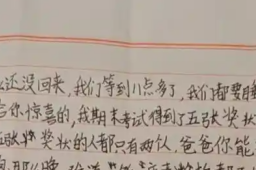 还没回来,我们等到八点多了,我们都要睡
你惊喜的,我期末考试得到了五张奖状
五张奖状的人都只有两人,爸爸你能